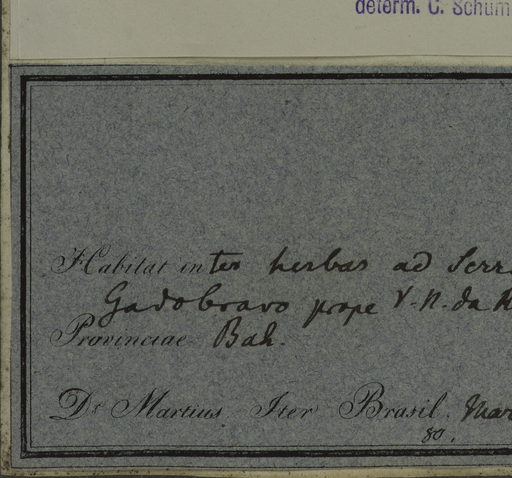 determ. C. Schum
Habitat inter herbas ad Serr
Gadobravo prope V. N. da R
Provinciae Bah.
Dr Martius Iter Brasil. Mar
80.